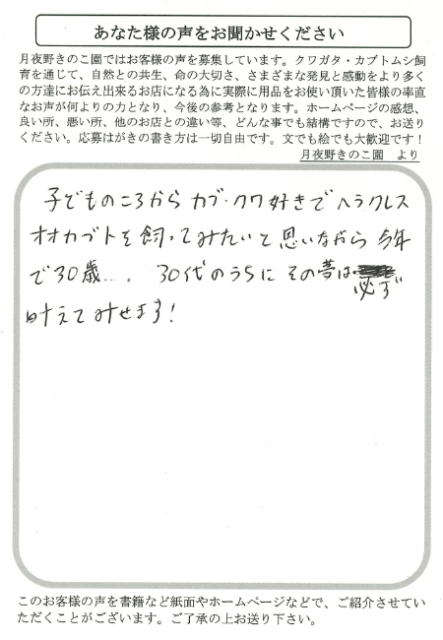 あなた様の声をお聞かせください
月夜野きのこ園ではお客様の声を募集しています。クワガタ・カブトムシ飼
育を通じて、自然との共生、命の大切さ、さまざまな発見と感動をより多く
の方達にお伝え出来るお店になる為に実際に用品をお使い頂いた皆様の率直
なお声が何よりの力となり、今後の参考となります。ホームページの感想、
良い所、悪い所、他のお店との違い等、どんな事でも結構ですので、お送り
ください。応募はがきの書き方は一切自由です。文でも絵でも大歓迎です！
月夜野きのこ園　より
子どものころからカブ・クワ好きでヘラクレス
オオカブトを飼ってみたいと思いながら今年
で30歳…。30代のうちにその夢は必ず
叶えてみせます！
このお客様の声を書籍など紙面やホームページなどで、ご紹介させてい
ただくことがございます。ご了承の上お送り下さい。